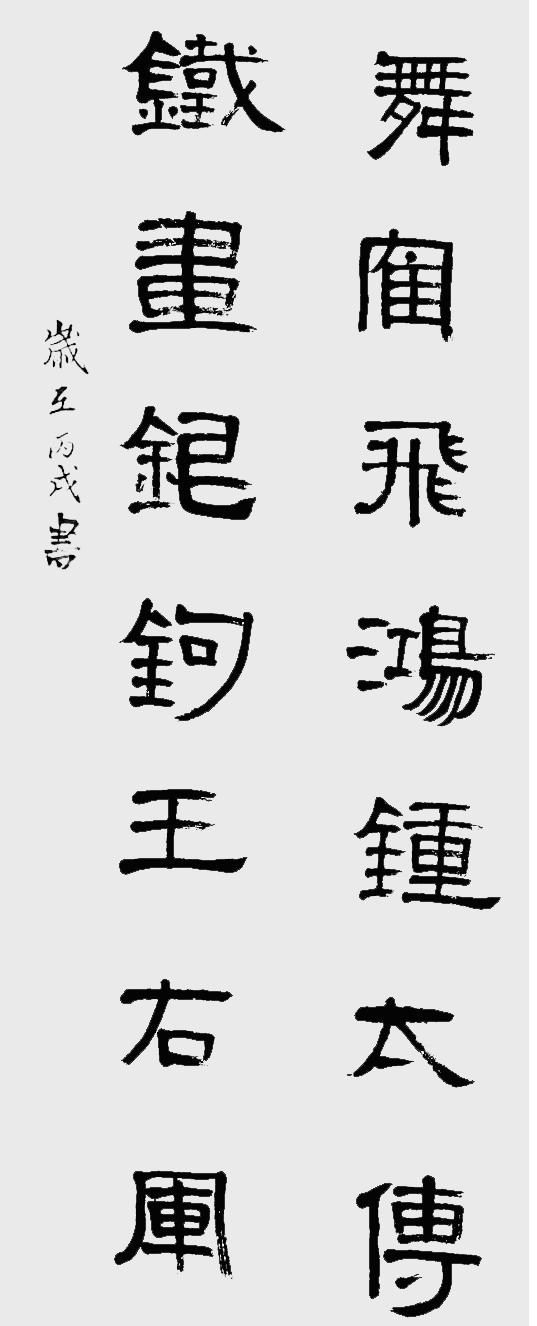 舞隺飛鴻鍾太傅
鐵畫銀鉤王右軍
歲在丙戌書